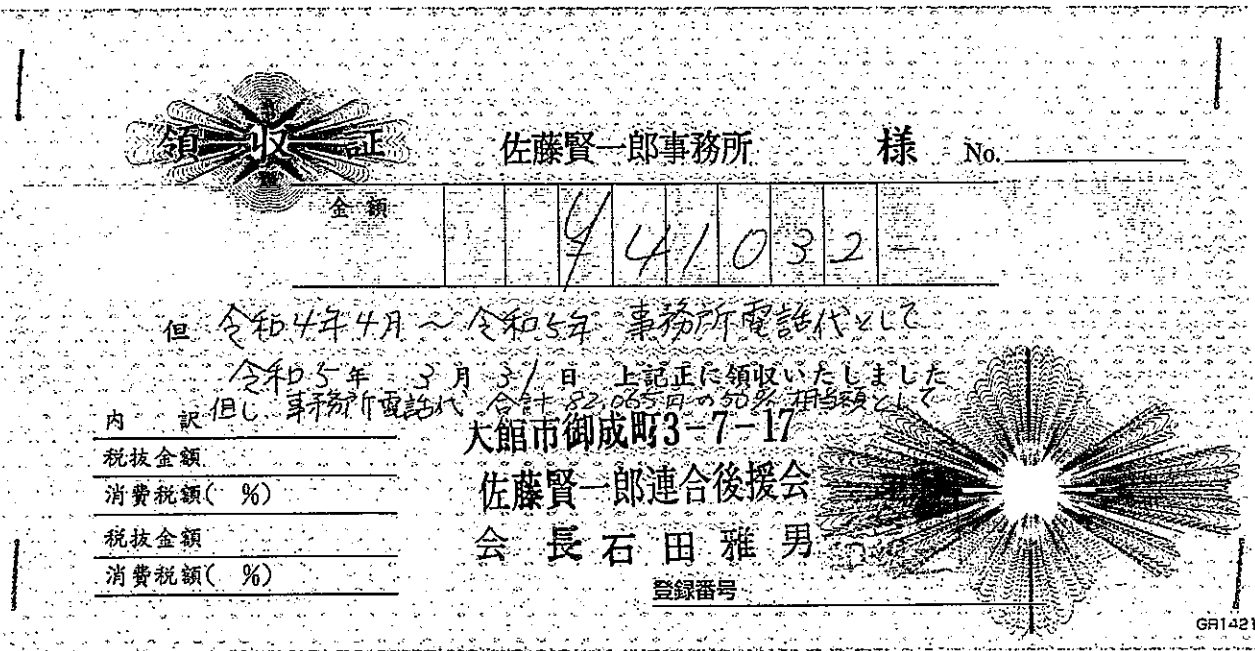 領収証
佐藤賢一郎事務所 様 No.
金額 ¥41032-
但 令和4年4月~令和5年 事務所電話代として
令和5年 3月 31日 上記正に領収いたしました
但し 事務所電話代 合計 82,065円の50%相当額として
内 訳
税抜金額
消費税額( %)
税抜金額
消費税額( %)
大館市御成町3-7-17
佐藤賢一郎連合後援会
会 長 石 田 雅 男
登録番号
GR1421